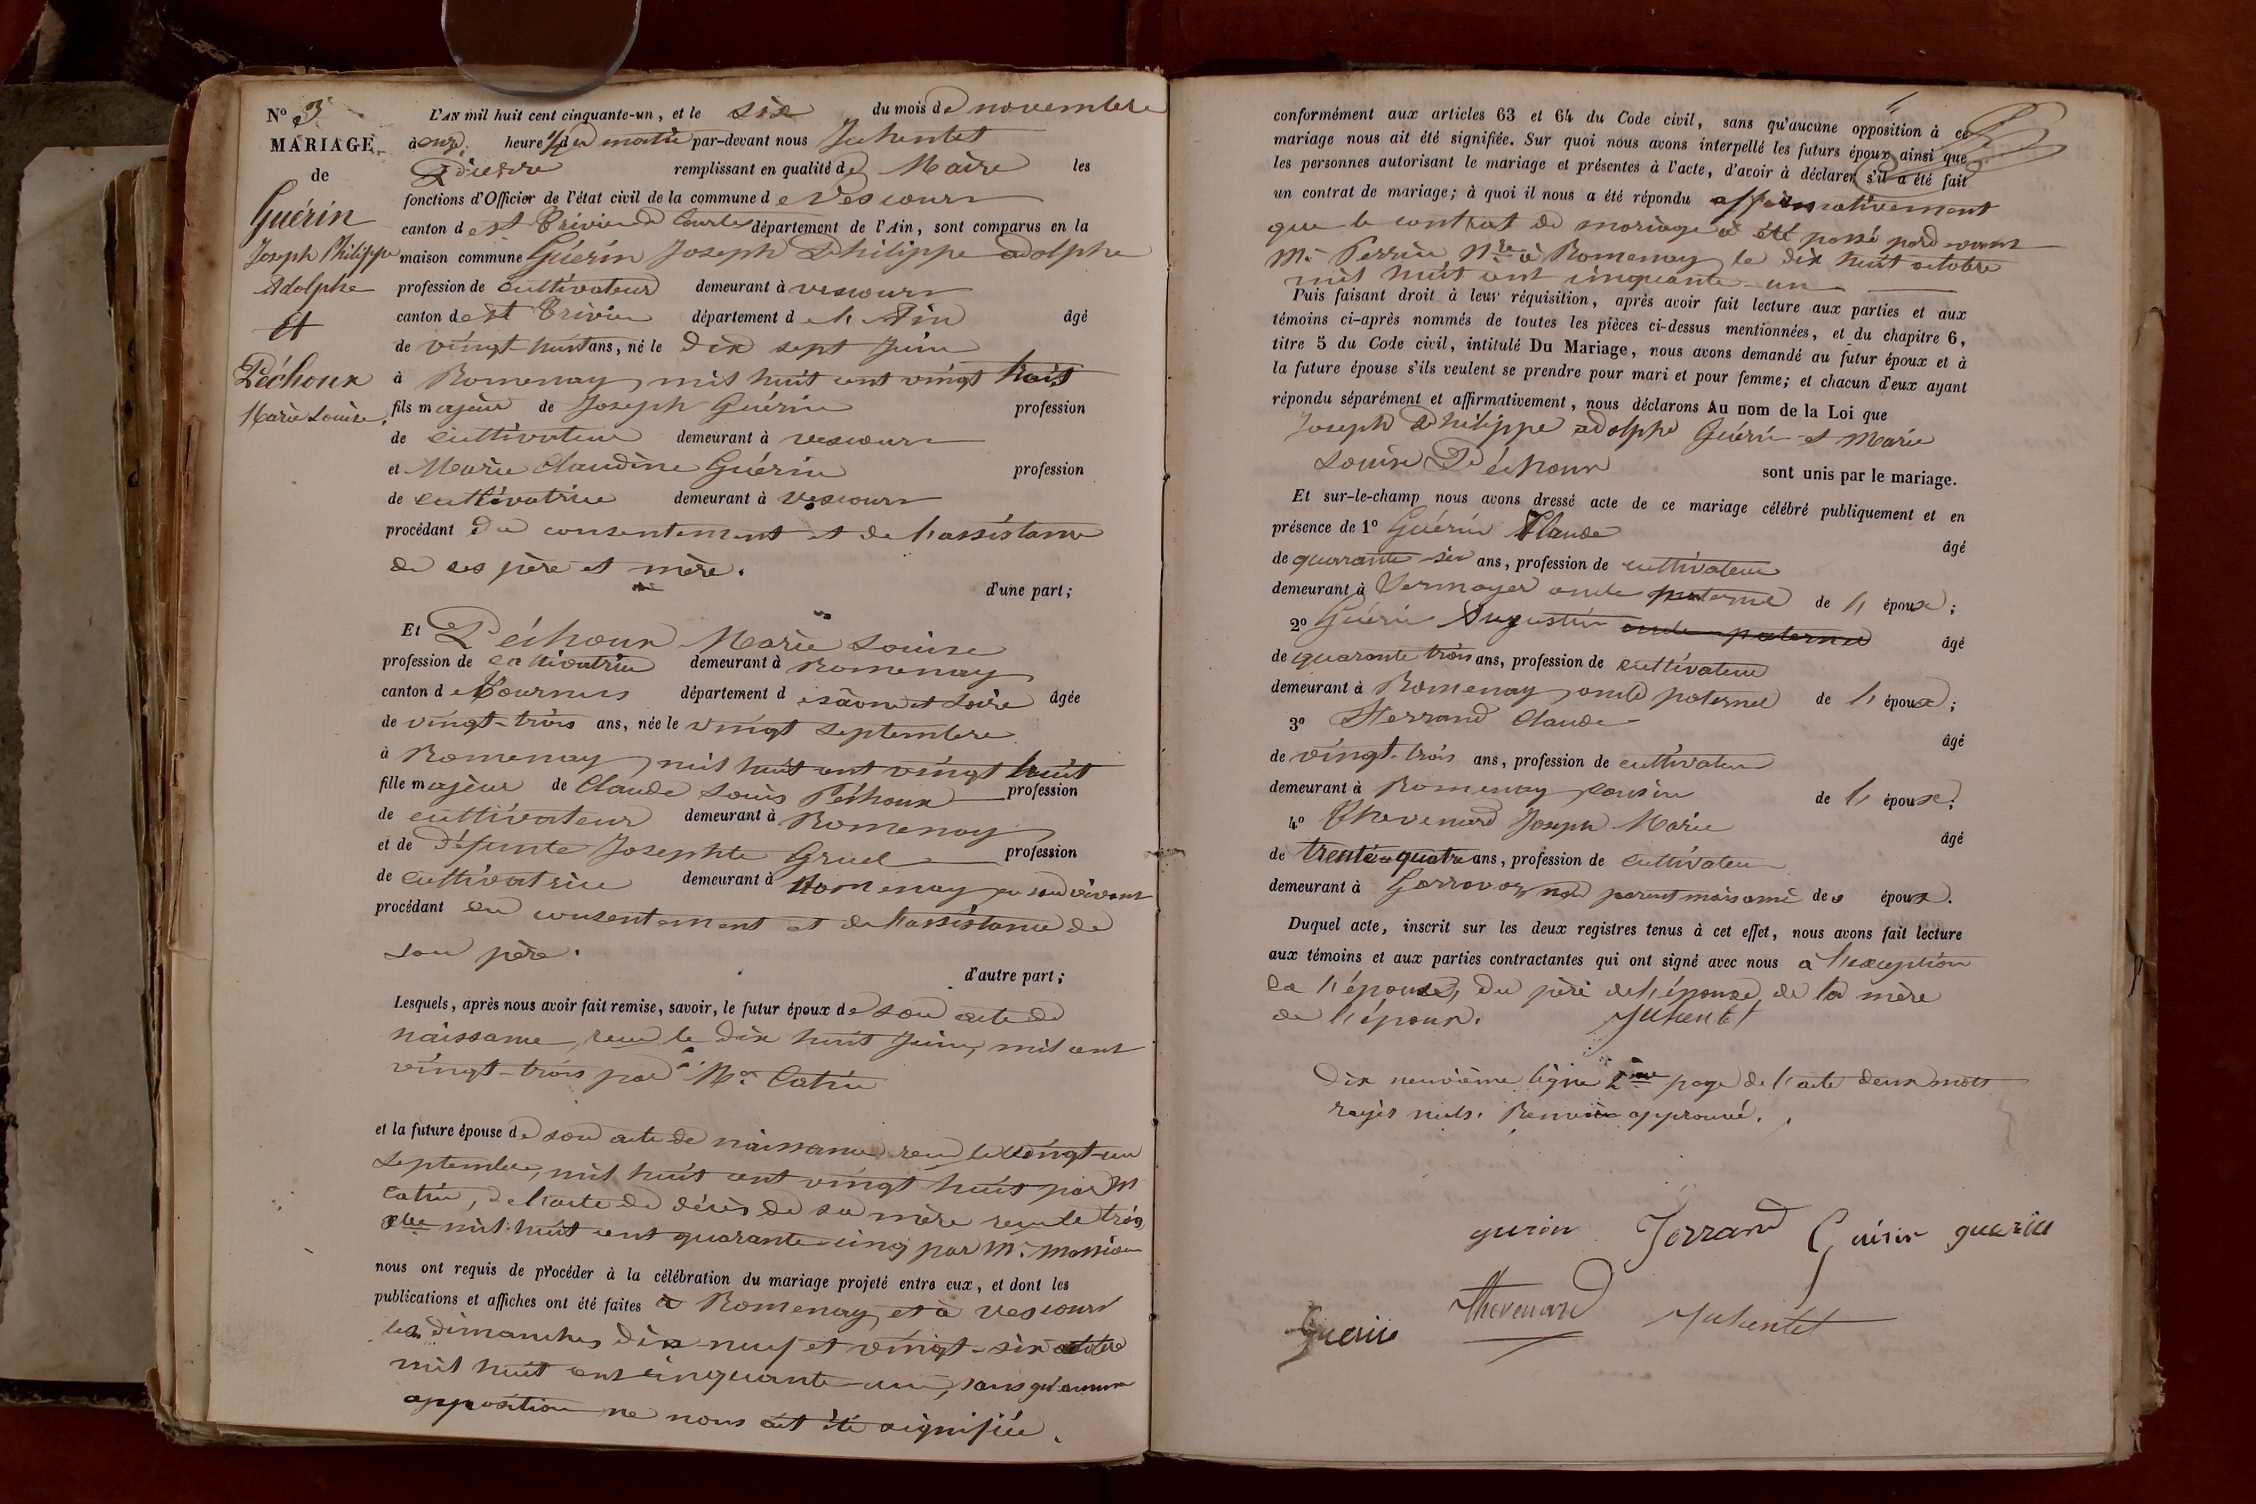 N° 3
MARIAGE
de
Guérin
Joseph Philippe
Adolphe
et
Péchoux
Marie Louise.
L'AN mil huit cent cinquante-un, et le six du mois de novembre
à onze heure 1/2 du matin par-devant nous Juhentet
Pierre remplissant en qualité de Maire les
fonctions d'Officier de l'état civil de la commune de Vescours
canton de St Trivier de Courtes département de l'Ain, sont comparus en la
maison commune Guérin Joseph Philippe adolphe
profession de cultivateur demeurant à vescours
canton de St Trivier département de l'Ain âgé
de vingt-huit ans, né le dix sept Juin
à Romenay, mil huit cent vingt trois
fils majeur de Joseph Guérin profession
de cultivateur demeurant à vescours
et Marie Claudine Guérin profession
de cultivatrice demeurant à vescours
procédant du consentement et de l'assistance
de ses père et mère.
d'une part;
Et Péchoux Marie Louise
profession de cultivatrice demeurant à Romenay
canton de Tournus département de saône et Loire âgée
de vingt-trois ans, née le vingt septembre
à Romenay, mil huit cent vingt huit
fille majeure de Claude Louis Péchoux profession
de cultivateur demeurant à Romenay
et de défunte Josephte Gruel profession
de cultivatrice demeurant à Romenay en son vivant
procédant du consentement et de l'assistance de
son père.
d'autre part;
Lesquels, après nous avoir fait remise, savoir, le futur époux de son acte de
naissance, reçu le dix huit Juin, mil cent
vingt-trois par Mr. Catin
et la future épouse de son acte de naissance reçu le vingt-un
septembre, mil huit cent vingt huit par M
Catin, de l'acte de décès de sa mère reçu le trois
xbre mil huit cent quarante-cinq par Mr.
nous ont requis de procéder à la célébration du mariage projeté entre eux, et dont les
publications et affiches ont été faites à Romenay et à vescours
les dimanches dix-neuf et vingt-six octobre
mil huit cent cinquante-un, sans qu'aucune
opposition ne nous ait été signifiée.
conformément aux articles 63 et 64 du Code civil, sans qu'aucune opposition à ce
mariage nous ait été signifiée. Sur quoi nous avons interpellé les futurs époux ainsi que
les personnes autorisant le mariage et présentes à l'acte, d'avoir à déclarer s'il a été fait
un contrat de mariage; à quoi il nous a été répondu affirmativement
que le contrat de mariage a été passé pardevant
Mr. Perrin Nre à Romenay le dix huit octobre
mil huit cent cinquante-un
Puis faisant droit à leur réquisition, après avoir fait lecture aux parties et aux
témoins ci-après nommés de toutes les pièces ci-dessus mentionnées, et du chapitre 6,
titre 5 du Code civil, intitulé Du Mariage, nous avons demandé au futur époux et à
la future épouse s'ils veulent se prendre pour mari et pour femme; et chacun d'eux ayant
répondu séparément et affirmativement, nous déclarons Au nom de la Loi que
Joseph Philippe adolphe Guérin et Marie
Louise Péchoux sont unis par le mariage.
Et sur-le-champ nous avons dressé acte de ce mariage célébré publiquement et en
présence de 1° Guérin Claude âgé
de quarante-six ans, profession de cultivateur
demeurant à Sermoyer oncle paternel de l'époux;
2° Guérin Augustin oncle paternel âgé
de quarante trois ans, profession de cultivateur
demeurant à Romenay, oncle paternel de l'époux;
3° Ferrand Claude âgé
de vingt-trois ans, profession de cultivateur
demeurant à Romenay, cousin de l'époux;
4° Thevenard Joseph Marie âgé
de trente-quatre ans, profession de cultivateur
demeurant à Gorrevod, non parent mais ami des époux.
Duquel acte, inscrit sur les deux registres tenus à cet effet, nous avons fait lecture
aux témoins et aux parties contractantes qui ont signé avec nous à l'exception
de l'épouse, du père de l'épouse, de la mère
de l'époux. Juhentet
Dix neuvième ligne 2me page de l'acte deux mots
rayés nuls. Renvoi approuvé.
guerin Ferrand Guérin guerin
Guerin Thevenard Juhentet